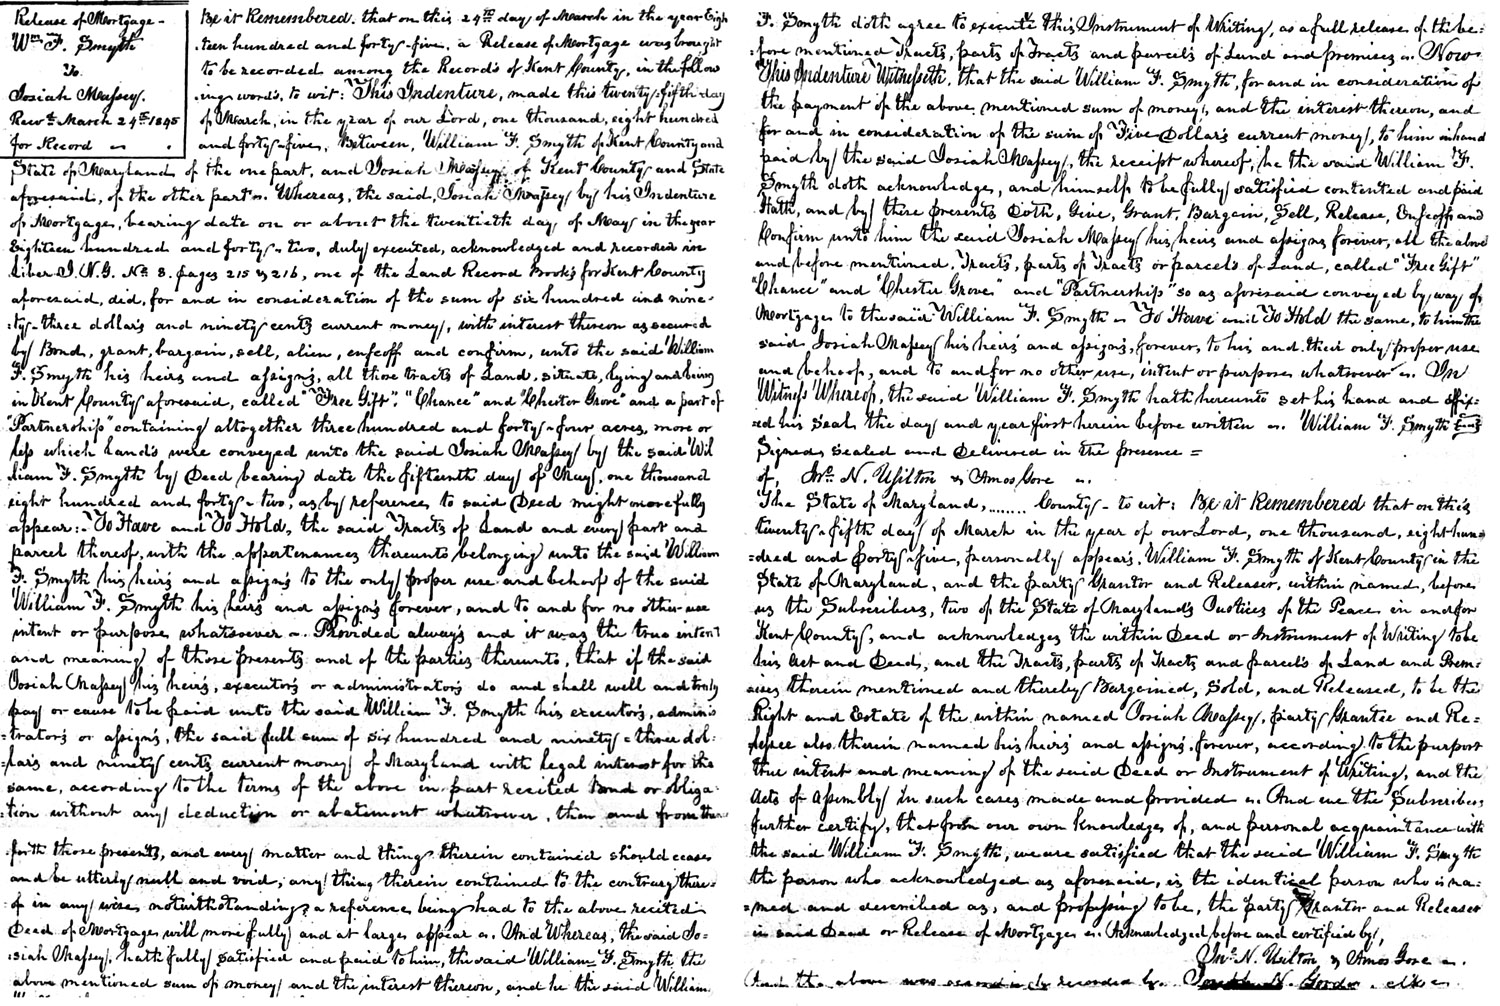 Release of Mortgage -
Wm. F. Smyth
To.
Josiah Massey.
Recd. March 24th 1845
for Record
Be it Remembered. that on this 24th day of March in the year Eigh
-teen hundred and forty-five, a Release of Mortgage was brought
to be recorded among the Records of Kent County, in the follow
-ing words, to wit: This Indenture, made this twenty-fifth day
of March, in the year of our Lord, one thousand, eight hundred
and forty-five, Between, William F. Smyth of Kent County and
State of Maryland of the one part, and Josiah Massey of Kent County and State
aforesaid, of the other part. Whereas, the said, Josiah Massey by his Indenture
of Mortgage, bearing date on or about the twentieth day of May in the year
Eighteen hundred and forty-two, duly executed, acknowledged and recorded in
Liber J. N. G. No. 8. pages 215 & 216, one of the Land Record Books for Kent County
aforesaid, did, for and in consideration of the sum of six hundred and nine-
-ty-three dollars and ninety cents current money, with interest thereon as secured
by Bond, grant, bargain, sell, alien, enfeoff and confirm, unto the said William
F. Smyth his heirs and assigns, all those tracts of Land, situate, lying and being
in Kent County aforesaid, called "Free Gift", "Chance" and "Chester Grove" and a part of
"Partnership" containing altogether three hundred and forty-four acres, more or
less which Lands were conveyed unto the said Josiah Massey by the said Wil
liam F. Smyth by Deed bearing date the fifteenth day of May, one thousand
eight hundred and forty-two, as by reference to said Deed might more fully
appear:- To Have and To Hold, the said Tracts of Land and every part and
parcel thereof, with the appertenances thereunto belonging unto the said William
F. Smyth his heirs and assigns to the only proper use and behoof of the said
William F. Smyth his heirs and assigns forever, and to and for no other use
intent or purpose whatsoever. Provided always and it was the true intent
and meaning of those presents and of the parties thereunto, that if the said
Josiah Massey his heirs, executors or administrators do and shall well and truly
pay or cause to be paid unto the said William F. Smyth his executors, adminis
-trators or assigns, the said full sum of six hundred and ninety-three dol-
-lars and ninety cents current money of Maryland with legal interest for the
same, according to the terms of the above in part recited Bond or obliga-
-tion without any deduction or abatement whatsoever, then and from thence
forth those presents, and every matter and thing therein contained should cease
and be utterly null and void, any thing therein contained to the contrary there-
-of in any wise notwithstanding, a reference being had to the above recited
Deed of Mortgage will more fully and at large appear. And Whereas, the said Jo-
-siah Massey, hath fully satisfied and paid to him, the said William F. Smyth the
above mentioned sum of money and the interest thereon, and he the said William
F. Smyth doth agree to execute this Instrument of Writing, as a full release of the be-
-fore mentioned Tracts, parts of Tracts and parcels of Land and premises. Now
This Indenture Witnesseth, that the said William F. Smyth, for and in consideration of
the payment of the above mentioned sum of money, and the interest thereon, and
for and in consideration of the sum of Five Dollars current money, to him in hand
paid by the said Josiah Massey, the receipt whereof, he the said William F.
Smyth doth acknowledge, and himself to be fully satisfied contented and paid
Hath, and by these presents Doth, Give, Grant, Bargain, Sell, Release, Enfeoff and
Confirm unto him the said Josiah Massey his heirs and assigns forever, all the above
and before mentioned Tracts, parts of Tracts or parcels of Land, called "Free Gift"
"Chance" and "Chester Grove" and "Partnership" so as aforesaid conveyed by way of
Mortgage to the said William F. Smyth. To Have and To Hold the same, to him the
said Josiah Massey his heirs and assigns, forever, to his and their only proper use
and behoof, and to and for no other use, intent or purpose whatsoever. In
Witness Whereof, the said William F. Smyth hath hereunto set his hand and affix-
-ed his Seal, the day and year first herein before written. William F. Smyth Seal
Signed sealed and Delivered in the presence =
of, Jno. N. Usilton & Amos Gore
The State of Maryland, ....... County - to wit: Be it Remembered that on this
twenty-fifth day of March in the year of our Lord, one thousand, eight hun-
-dred and forty-five, personally appears, William F. Smyth of Kent County in the
State of Maryland, and the party Grantor and Releasor, within named, before
us the Subscribers, two of the State of Maryland's Justices of the Peace in and for
Kent County, and acknowledges the within Deed or Instrument of Writing to be
his act and Deed, and the Tracts, parts of Tracts and parcels of Land and Prem-
-ises therein mentioned and thereby Bargained, Sold, and Released, to be the
Right and Estate of the within named Josiah Massey, party Grantee and Re-
-lessee also therein named his heirs and assigns forever, according to the purport
true intent and meaning of the said Deed or Instrument of Writing, and the
Acts of Assembly in such cases made and provided. And we the Subscribers
further certify, that from our own knowledge of, and personal acquaintance with
the said William F. Smyth, we are satisfied that the said William F. Smyth
the person who acknowledged as aforesaid, is the identical person who is na-
-med and described as, and professing to be, the party Grantor and Releasor
in said Deed or Release of Mortgage. Acknowledged before and certified by,
Jno. N. Usilton, & Amos Gore
the above was accordingly recorded by N. Gordon Clk